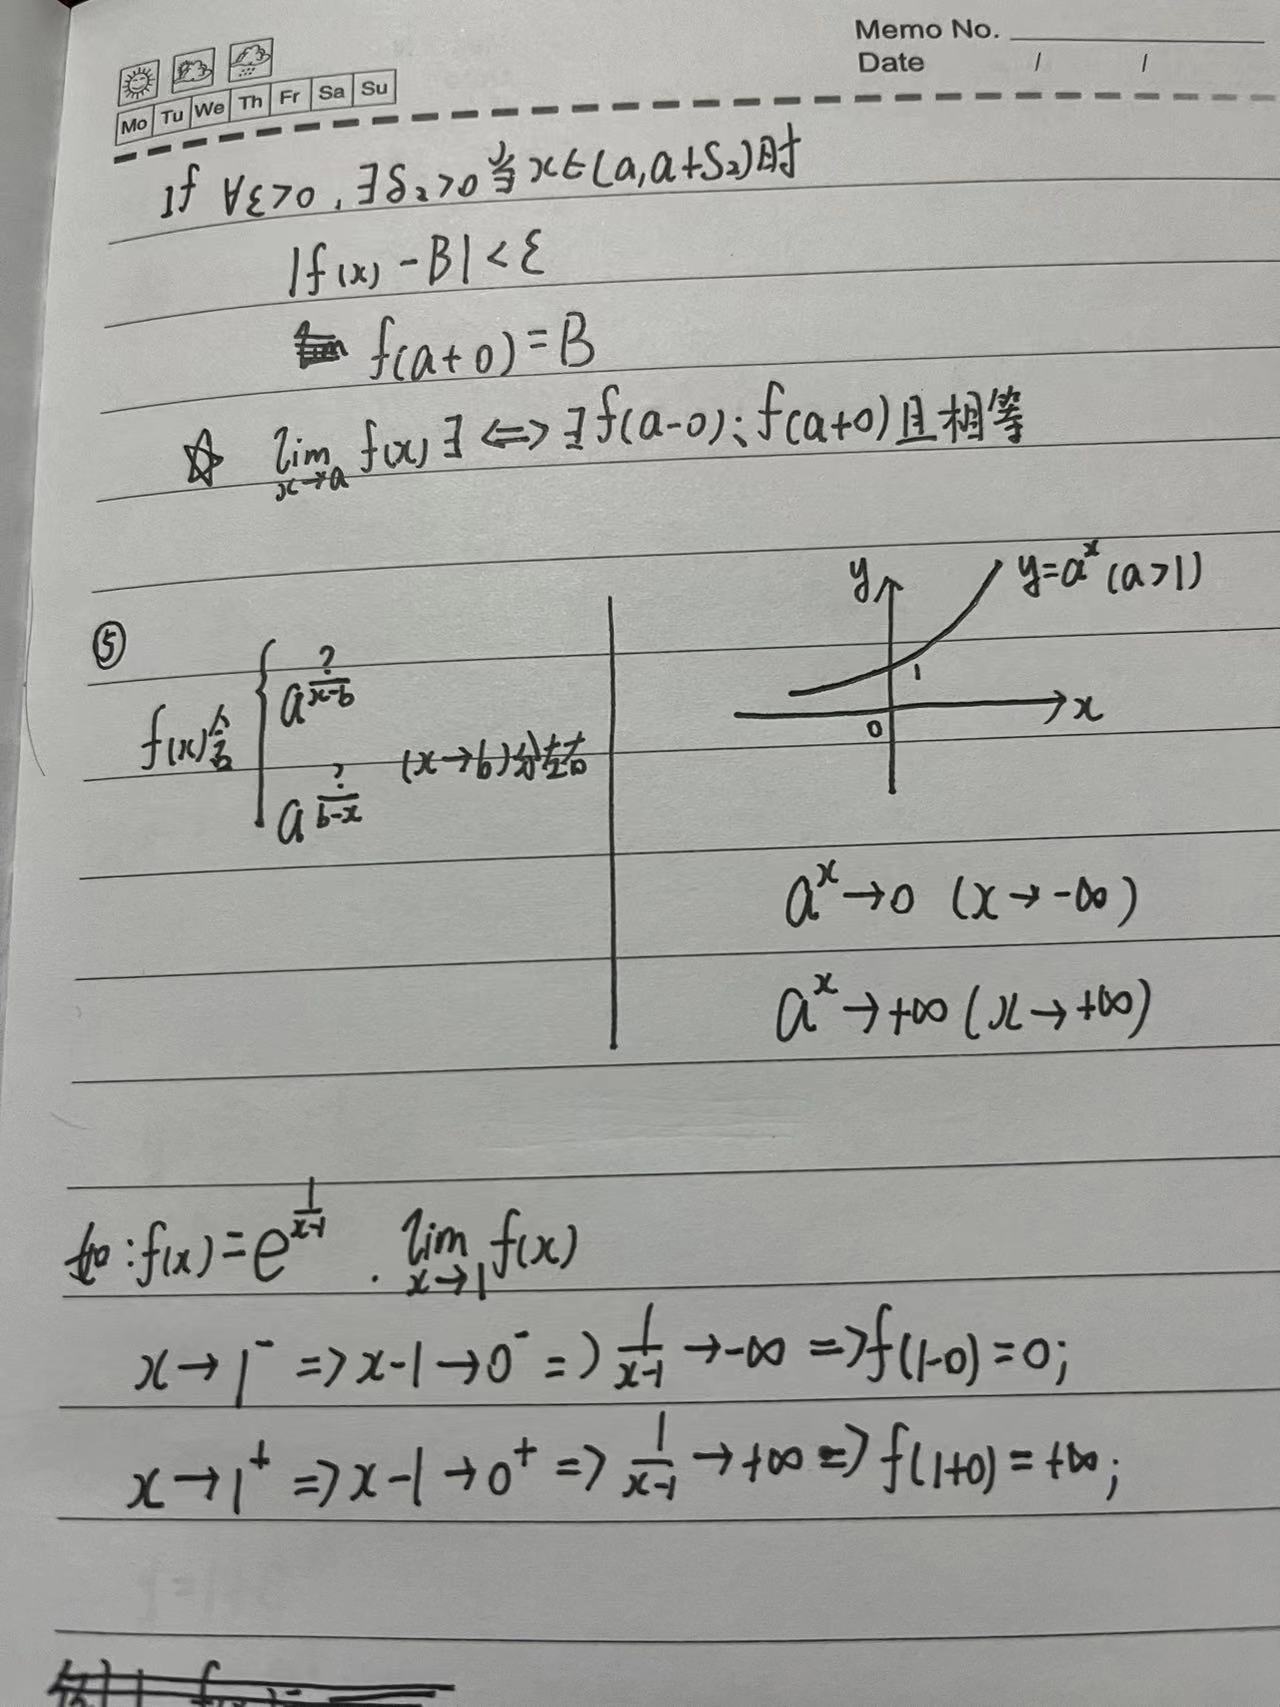 Memo No.
Date / /
Mo Tu We Th Fr Sa Su
If ∀ε>0, ∃δ₂>0当x∈(a,a+δ₂)时
|f(x)-B|<ε
f(a+0)=B
☆ lim_{x→a} f(x)∃ ⇔ ∃f(a-0)、f(a+0)且相等
⑤
f(x)含 { a^{?/(x-b)}
a^{?/(b-x)} (x→b)分左右
y y=a^x (a>1)
1
0 x
a^x→0 (x→-∞)
a^x→+∞ (x→+∞)
如:f(x)=e^{1/(x-1)}. lim_{x→1} f(x)
x→1⁻ => x-1→0⁻ => 1/(x-1) →-∞ => f(1-0)=0;
x→1⁺ => x-1→0⁺ => 1/(x-1) →+∞ => f(1+0)=+∞;